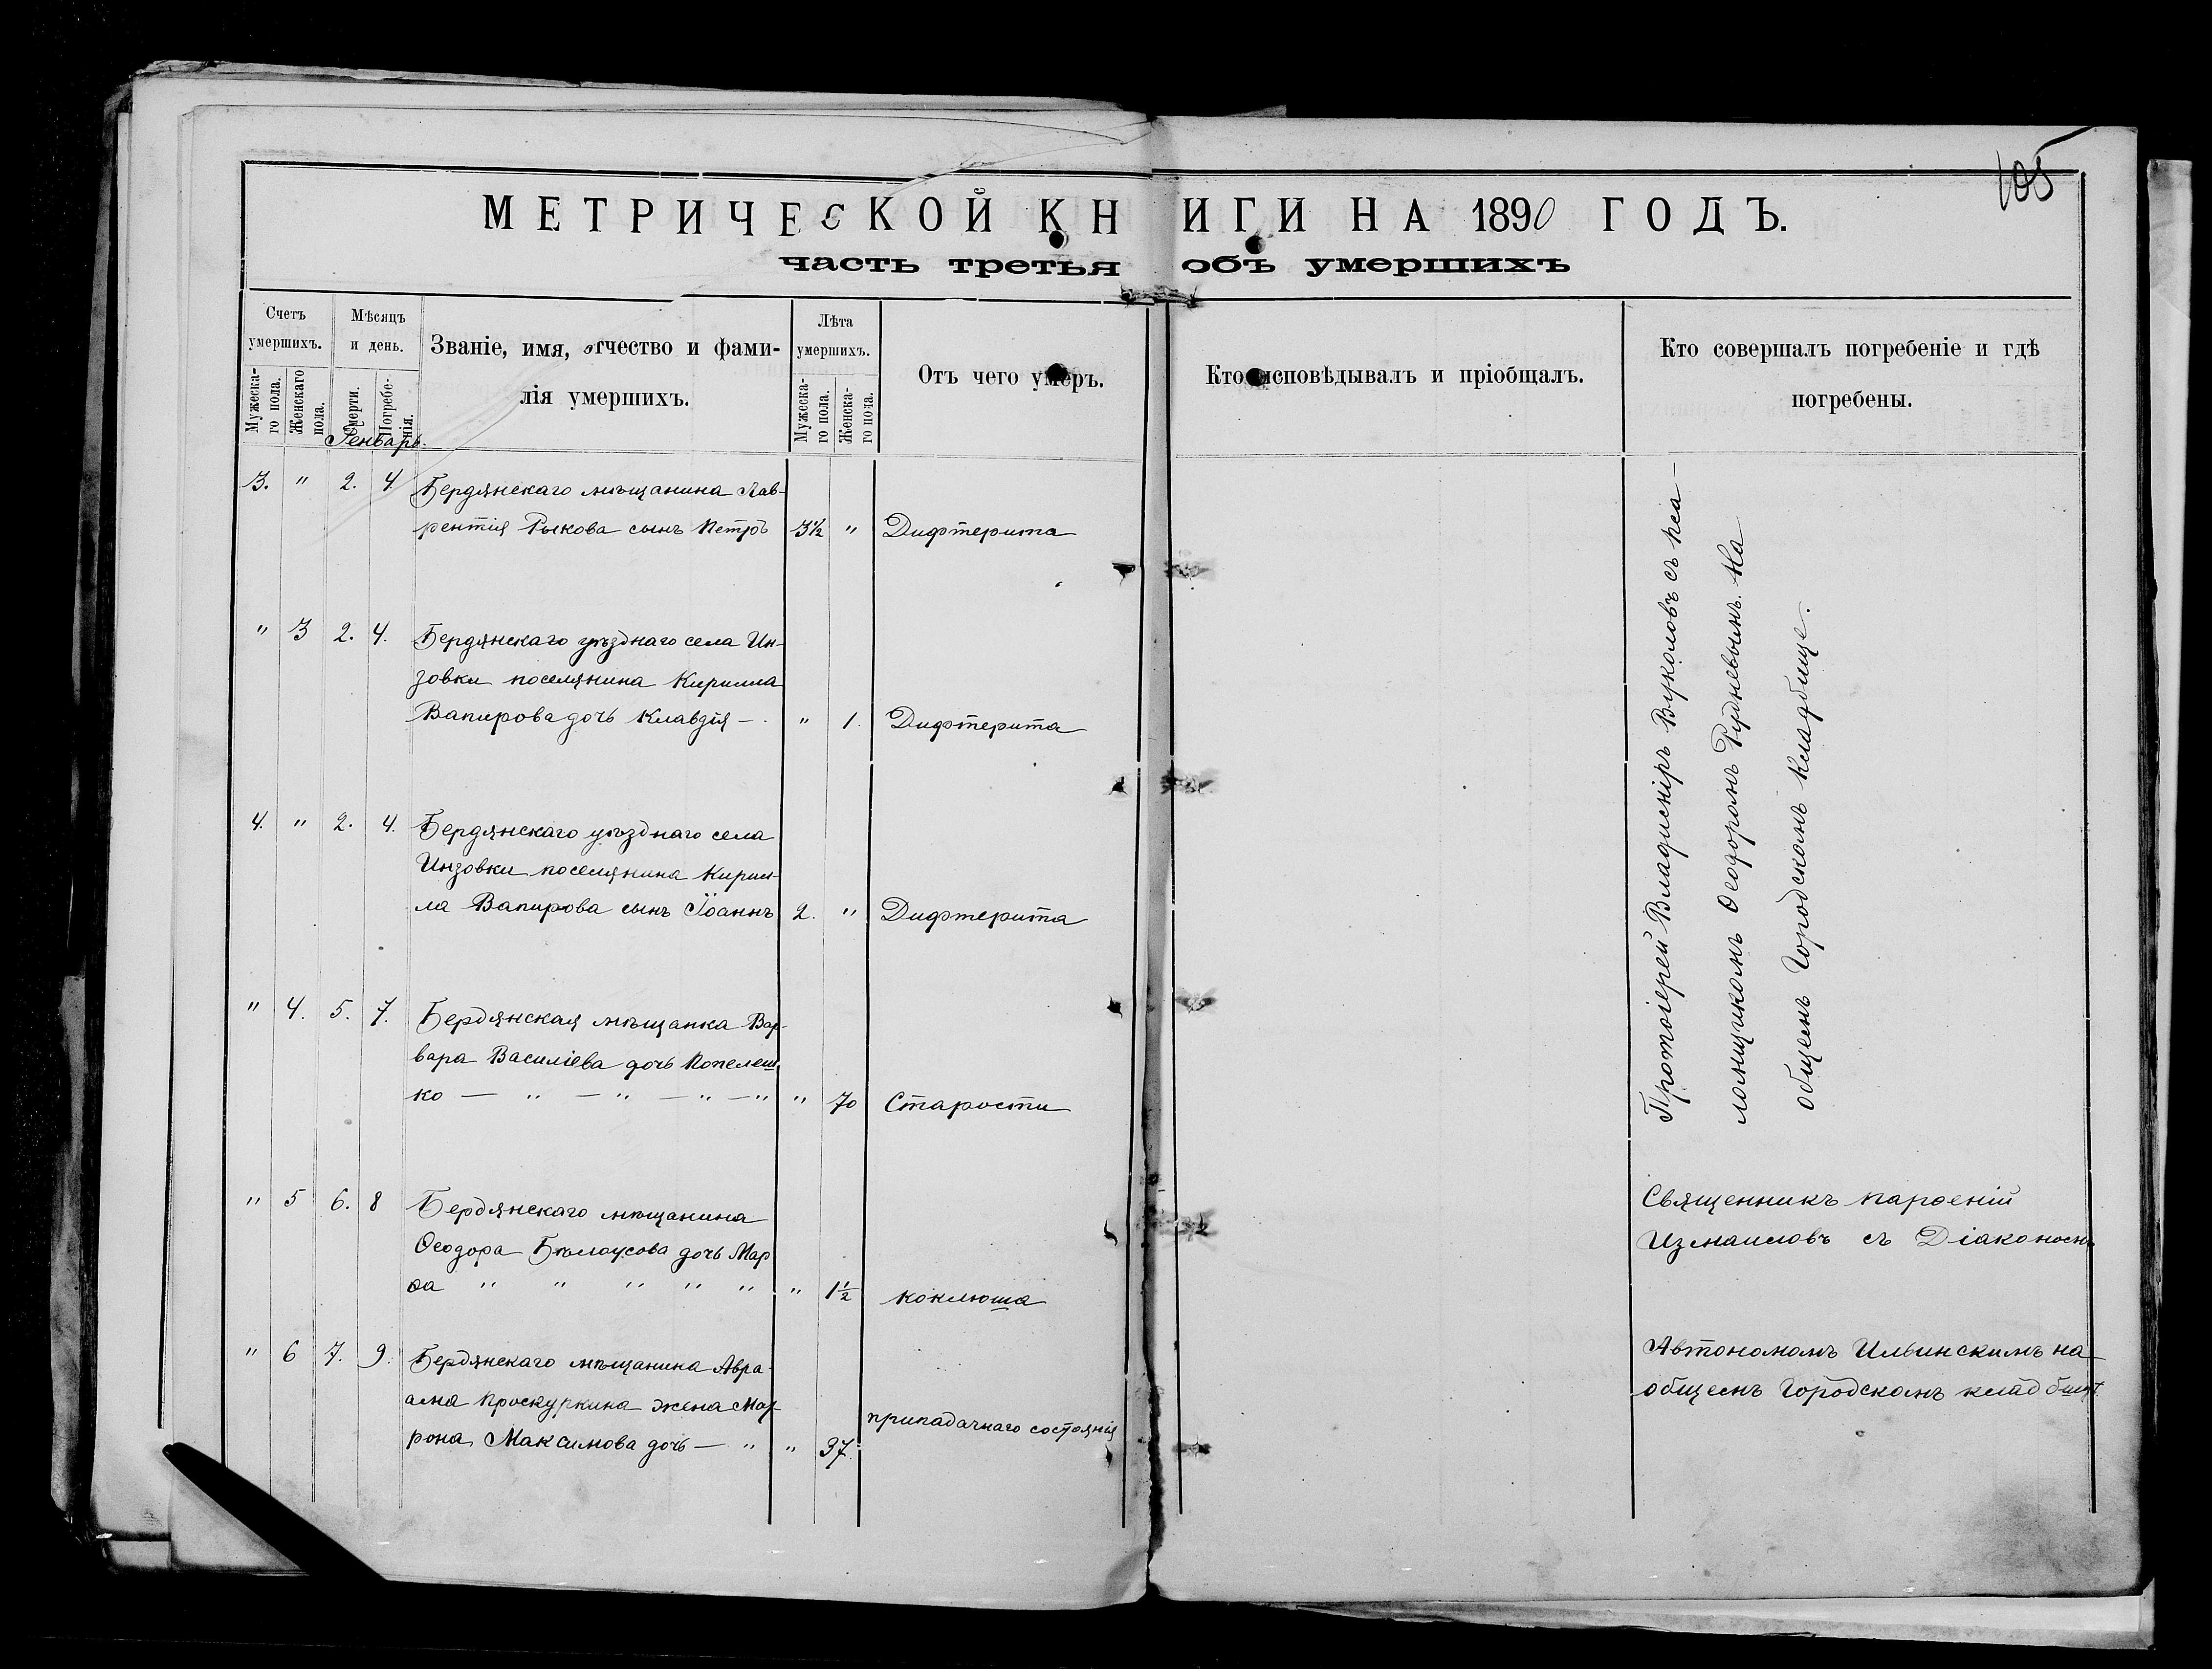 105
МЕТРИЧЕСКОЙ КНИГИ НА 1890 ГОДЪ.
часть третья объ умершихъ
Счетъ умершихъ.
Мужеска-го пола.
Женскаго пола.
Мѣсяцъ и день.
Смерти.
Погребе-нія.
Званіе, имя, отчество и фами-
лія умершихъ.
Лѣта умершихъ.
Мужеска-го пола.
Женска-го пола.
Отъ чего умеръ.
Кто исповѣдывалъ и пріобщалъ.
Кто совершалъ погребеніе и гдѣ
погребены.
Генварь.
3. " 2. 4. Бердянскаго мѣщанина Лав-
рентія Рыкова сынъ Петръ 3½ " Дифтерита
" 3 2. 4. Бердянскаго уѣзднаго села Ин-
зовки поселянина Кирилла
Вапирова дочь Клавдія — " 1. Дифтерита
4. " 2. 4. Бердянскаго уѣзднаго села
Инзовки поселянина Кирил-
ла Вапирова сынъ Іоаннъ 2. " Дифтерита
" 4. 5. 7. Бердянская мѣщанка Вар-
вара Василіева дочь Попелеш
ко — " — " — " — " " 70 Старости
Протоіерей Владиміръ Вуколовъ съ пса-
ломщикомъ Ѳеодоромъ Рудневымъ. На
общемъ Городскомъ кладбище.
" 5 6. 8 Бердянскаго мѣщанина
Ѳеодора Бѣлоусова дочь Мар
ѳа " " " " " " 1½ коклюша
Священникъ Парѳеній
Измаиловъ съ Діакономъ
" 6 7. 9. Бердянскаго мѣщанина Авра-
ама Проскуркина жена Мат-
рона Максимова дочь — " " 37. припадачнаго состоянія
Автономомъ Ильинскимъ на
общемъ Городскомъ кладбищѣ.